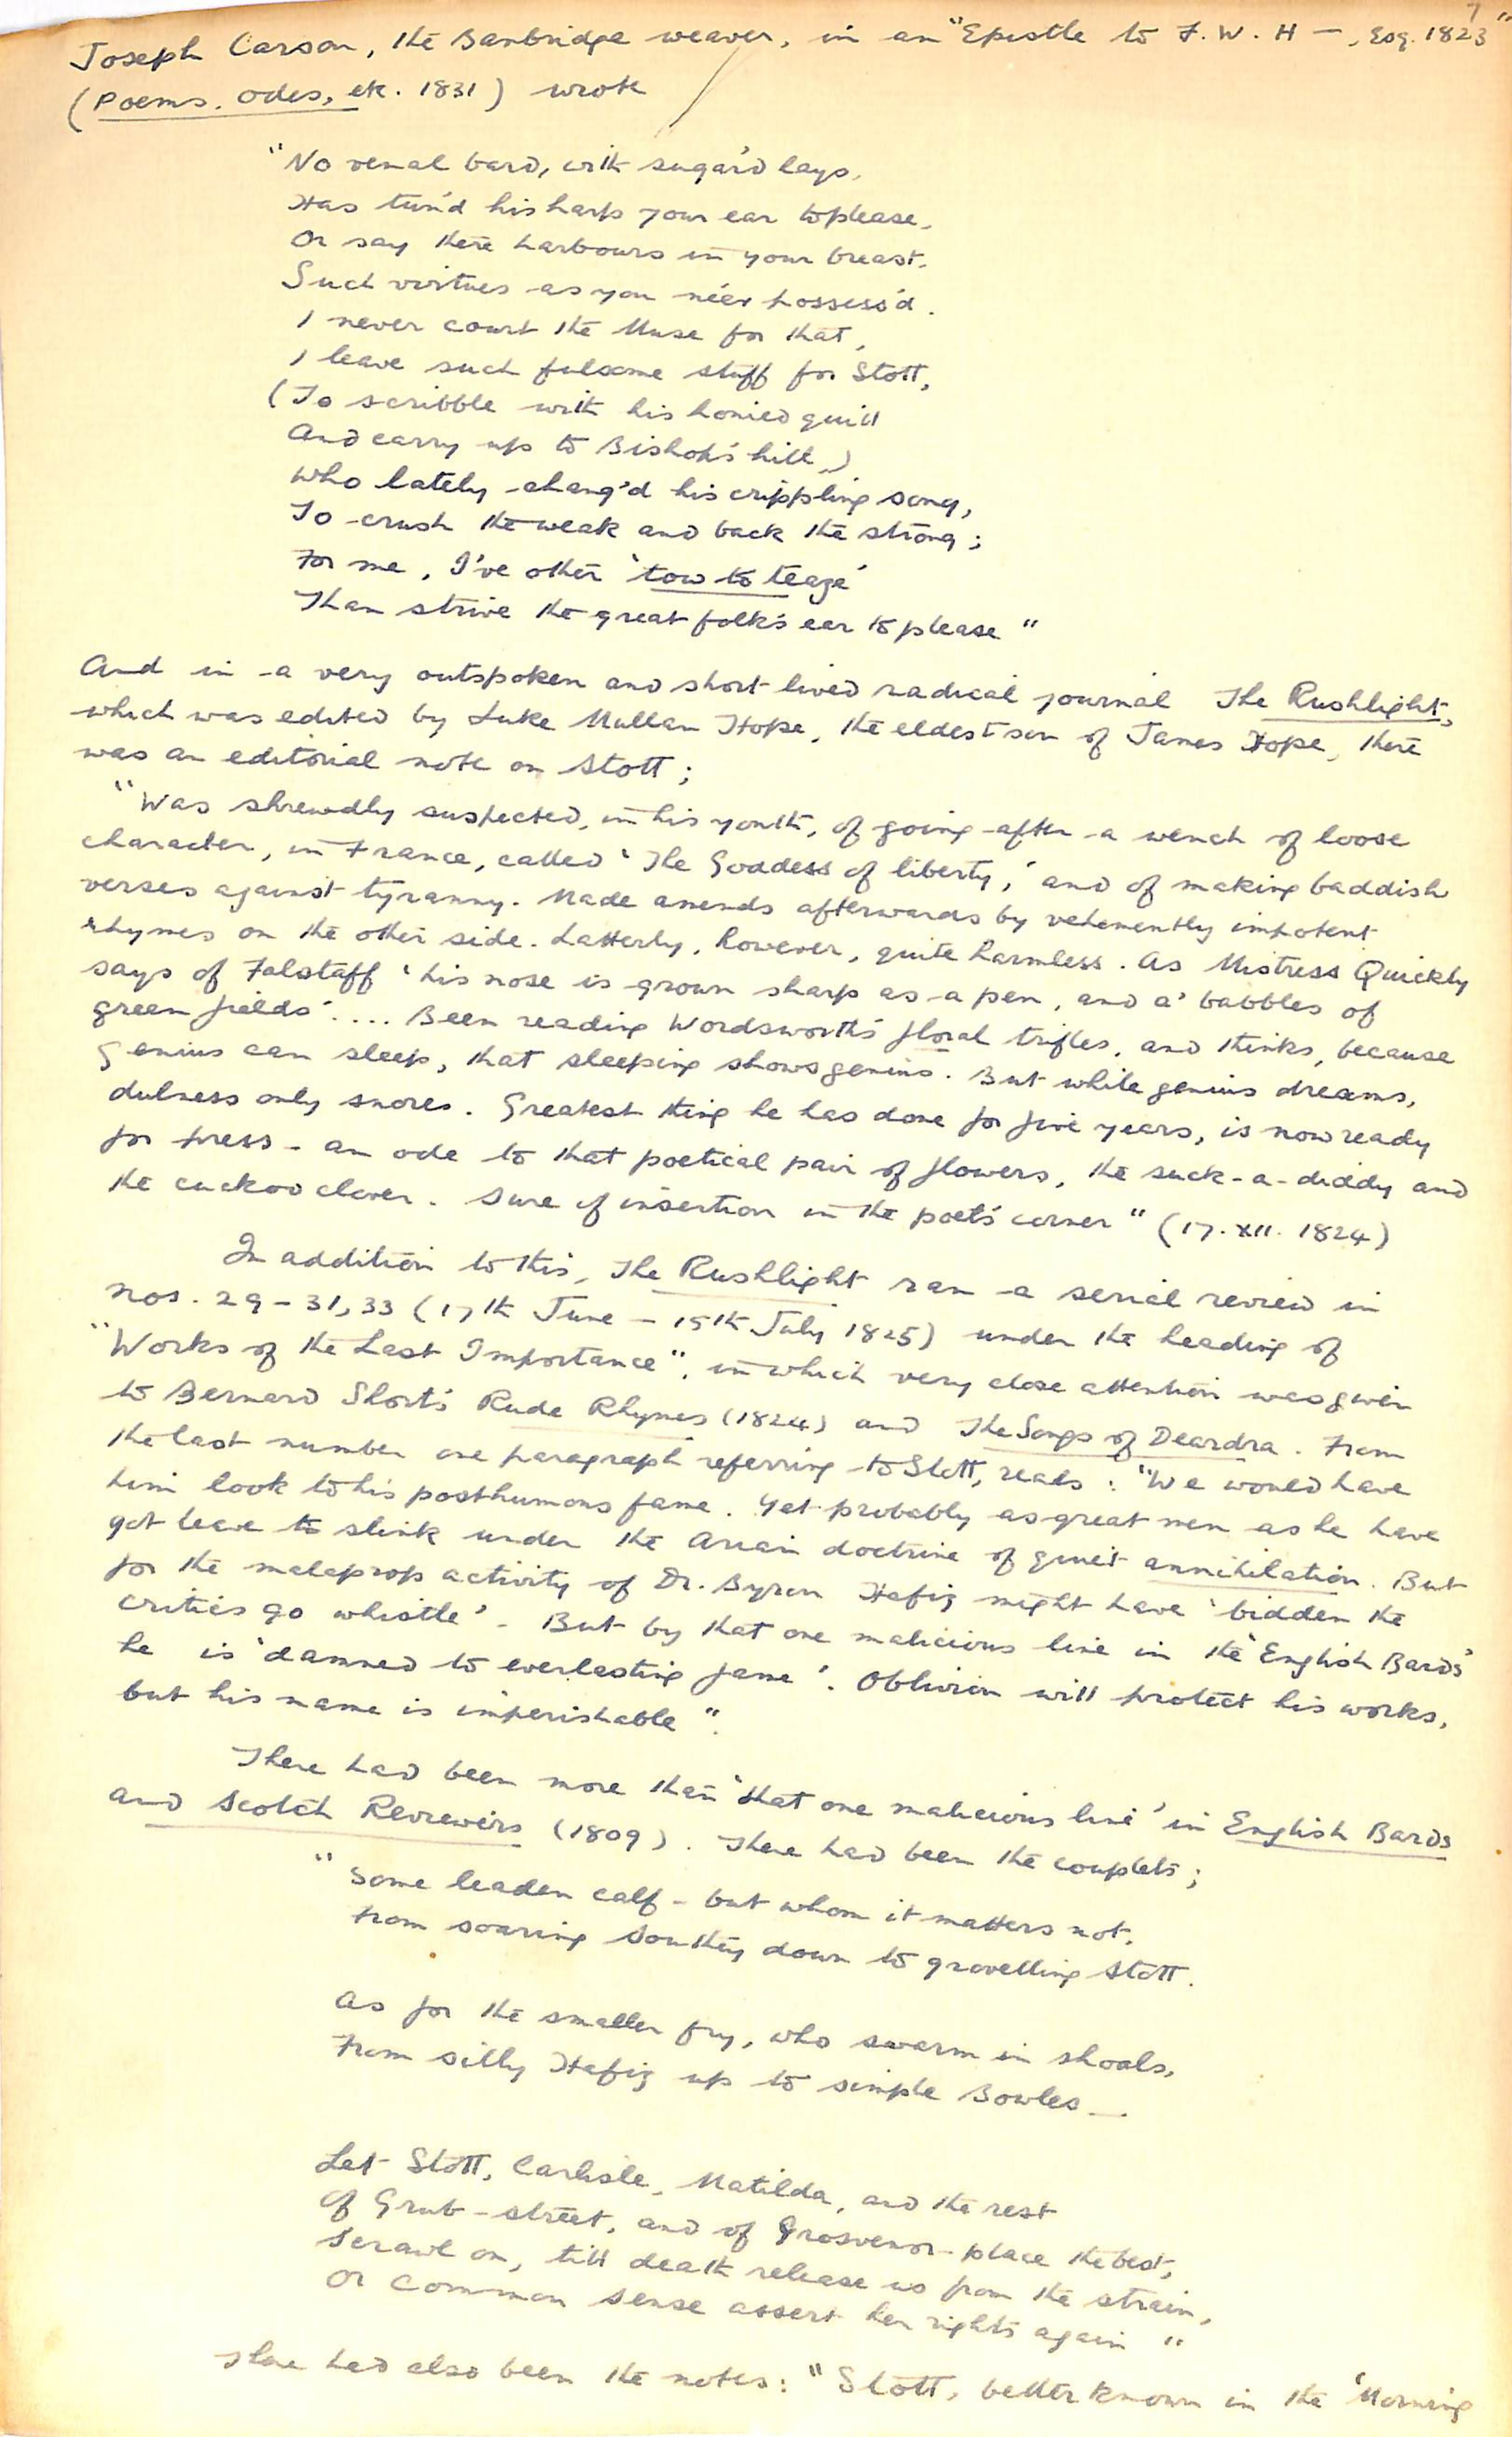 7
Joseph Carson, the Banbridge weaver, in an "Epistle to F. W. H —, Esq. 1823"
(Poems, Odes, etc. 1831) wrote
"No venal bard, with sugar'd lays,
Has tun'd his harp your ear to please,
Or say there harbours in your breast,
Such virtues as you ne'er possess'd.
I never court the Muse for that,
I leave such fulsome stuff for Stott,
(To scribble with his honied quill
And carry up to Bishop's hill,)
Who lately chang'd his crippling song,
To crush the weak and back the strong;
For me, I've other 'tow to teaze'
Than strive the great folk's ear to please"
And in a very outspoken and short-lived radical journal The Rushlight,
which was edited by Luke Mullan Hope, the eldest son of James Hope, there
was an editorial note on Stott;
"Was shrewdly suspected, in his youth, of going after a wench of loose
character, in France, called 'The Goddess of liberty,' and of making baddish
verses against tyranny. Made amends afterwards by vehemently impotent
rhymes on the other side. Latterly, however, quite harmless. As Mistress Quickly
says of Falstaff 'his nose is grown sharp as a pen, and a' babbles of
green fields'.... Been reading Wordsworth's floral trifles, and thinks, because
genius can sleep, that sleeping shows genius. But while genius dreams,
dulness only snores. Greatest thing he has done for five years, is now ready
for press - an ode to that poetical pair of flowers, the suck-a-diddy and
the cuckoo clover. Sure of insertion in the poet's corner" (17. XII. 1824)
In addition to this, The Rushlight ran a serial review in
nos. 29-31, 33 (17th June - 15th July 1825) under the heading of
"Works of the Last Importance", in which very close attention was given
to Bernard Short's Rude Rhymes (1824) and The Songs of Deardra. From
the last number one paragraph referring to Stott, reads: "We would have
him look to his posthumous fame. Yet probably as great men as he have
got leave to slink under the Arian doctrine of quiet annihilation. But
for the malaprop activity of Dr. Byron Hafiz might have 'bidden the
critics go whistle' - But by that one malicious line in the 'English Bards'
he is 'damned to everlasting fame'. Oblivion will protect his works,
but his name is imperishable".
There had been more than 'that one malicious line' in English Bards
and Scotch Reviewers (1809). There had been the couplets;
"Some leaden calf - but whom it matters not,
From soaring Southey down to grovelling Stott.
As for the smaller fry, who swarm in shoals,
From silly Hafiz up to simple Bowles —
Let Stott, Carlisle, Matilda, and the rest
Of Grub-street, and of Grosvenor-place the best,
Scrawl on, till death release us from the strain,
Or Common Sense assert her rights again"
There had also been the notes: "Stott, better known in the 'Morning